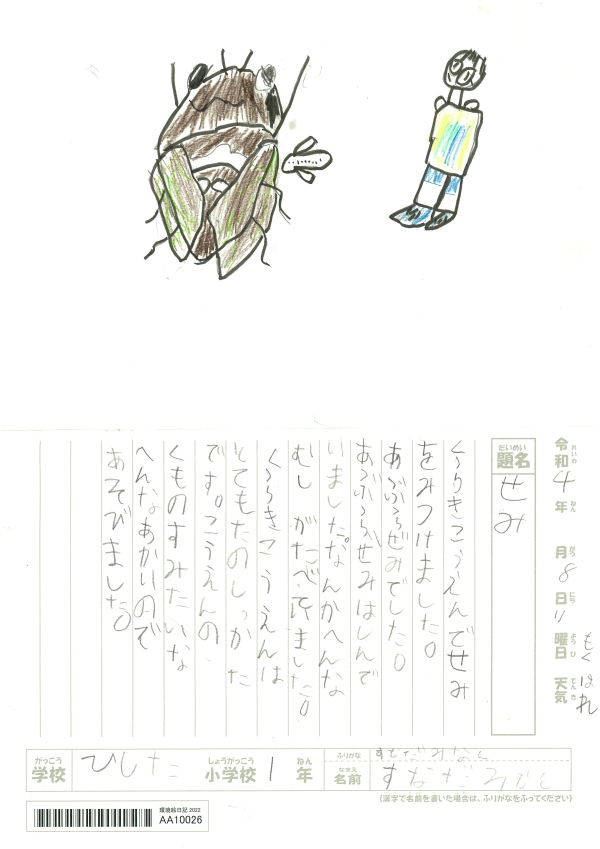 令和4年 月8日11曜日もく 天気はれ
題名 せみ
くらきこうえんでせみ
をみつけました。
あぶらぜみでした。
あぶらぜみはしんで
いました。なんかへんな
むし がたべてました。
くらきこうえんは
とてもたのしかった
です。こうえんの
くものすみたいな
へんなあかいので
あそびました。
がっこう 学校 ひした しょうがっこう 小学校 1 ねん 年
ふりがな
なまえ 名前
(漢字で名前を書いた場合は、ふりがなをふってください)
環境絵日記 2022
AA10026